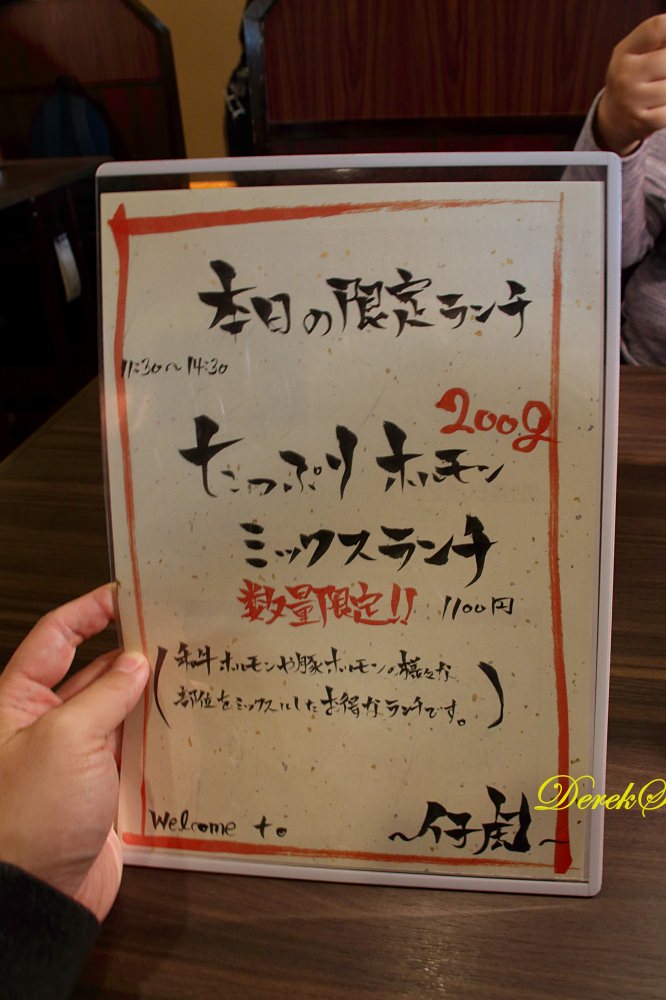 本日の限定ランチ
11:30~14:30
200g
たっぷりホルモン
ミックスランチ
数量限定!! 1100円
(和牛ホルモンや豚ホルモンの様々な
部位をミックスしたお得なランチです。)
Welcome to
~仔虎~
DerekS